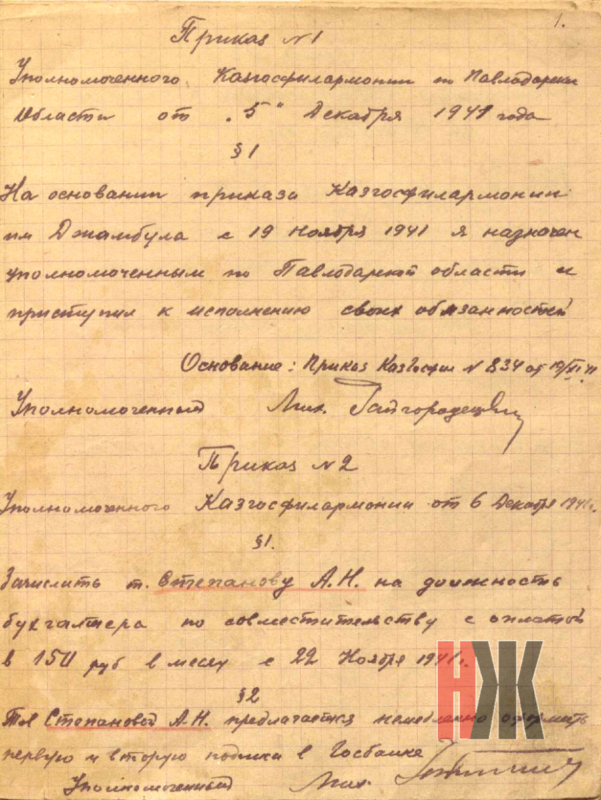 1.
Приказ №1
Уполномоченного Казгосфилармонии по Павлодарск
Области от „5“ Декабря 1941 года
§1
На основании приказа Казгосфилармонии
им Джамбула с 19 ноября 1941 я назначен
уполномоченным по Павлодарской области и
приступил к исполнению своих обязанностей
Основание: Приказ Казгосфил №834 от 19/XI 41
Уполномоченный Мих.
Приказ №2
Уполномоченного Казгосфилармонии от 6 Декабря 1941г.
§1.
Зачислить т. Степанову А.Н. на должность
бухгалтера по совместительству с оплатой
в 150 руб в месяц с 22 Ноября 1941г.
§2
Тов Степановой А.Н. предлагается немедленно оформить
первую и вторую подписи в Госбанке
Уполномоченный Мих.
НЖ